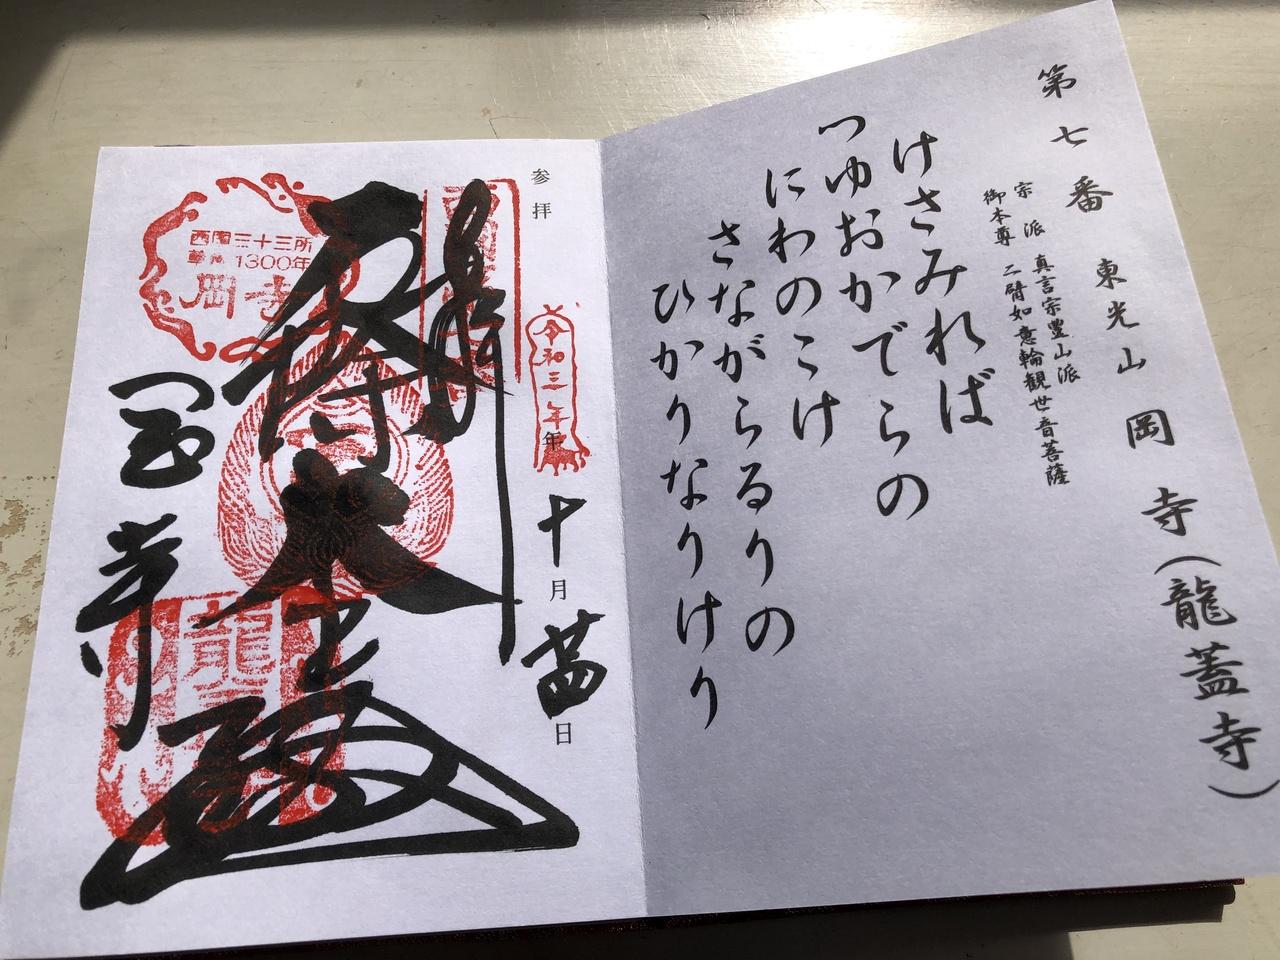 第七番 東光山 岡寺(龍蓋寺)
宗派 真言宗豊山派
御本尊 二臂如意輪観世音菩薩
けさみれば
つゆおかでらの
にわのこけ
さながらるりの
ひかりなりけり
参拝
令和三年
年十月廿四日
西国三十三所
草創1300年
岡寺
奉拝
厄除大悲殿
龍
岡寺